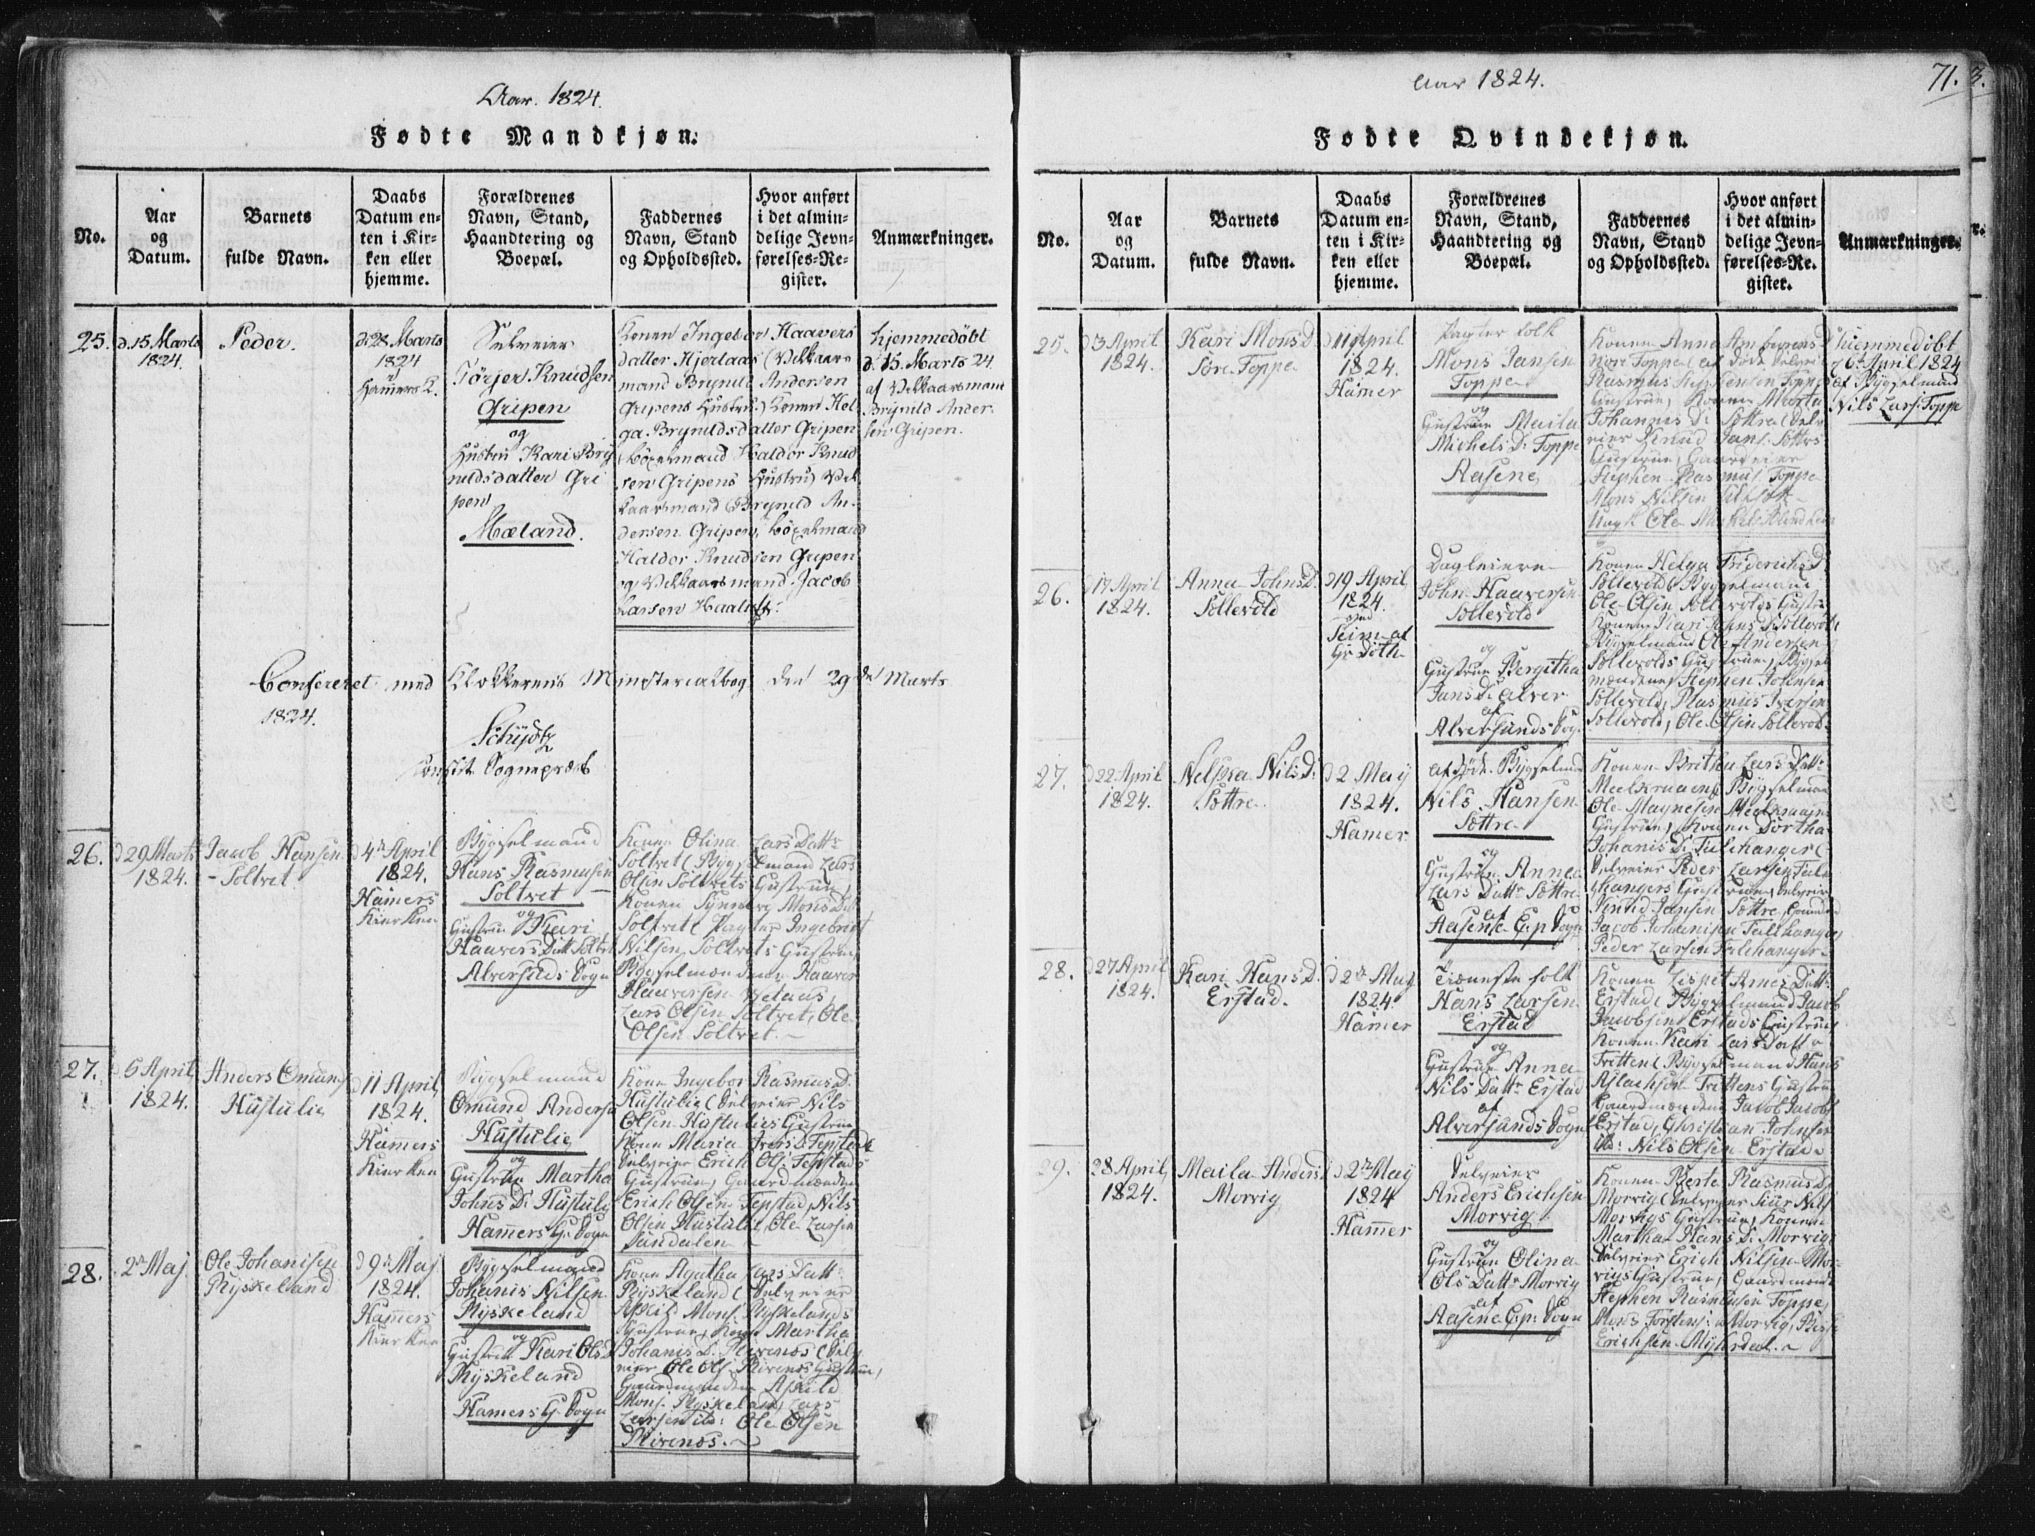 Aar. 1824.
Fødte Mandkjøn.
No.
Aar
og
Datum.
Barnets
fulde Navn.
Daabs
Datum en-
ten i Kir-
ken eller
hjemme.
Forældrenes
Navn, Stand,
Haandtering og
Boepæl.
Faddernes
Navn, Stand
og Opholdssted.
Hvor anført
i det almin-
delige Jevn-
førelses-Re-
gister.
Anmærkninger.
25.
d. 15 Marts
1824.
Peder.
d 28 Marts
1824
Hamers K.
Selveier
Torjer Knudsen
Gripen
og
Hustru Kari Bry
nildsdatter Gri
pen
Mæland.
Konen Ingebor Haavers
datter Hjertaas (Vilkaars
mand Brynild Andersen
Gripens Hustru) Konen Hel-
ga Brynildsdatter Gripen
(Böxelmand Haldor Knud
sen Gripens Hustru) Vil
kaarsmand Brynild An-
dersen Gripen, Böxelmand
Haldor Knudsen Gripen
og Vilkaarsmand Jacob
Larsen
hjemmedöbt
d. 15 Marts 24
af Vilkaarsmand
Brynild Ander
sen Gripen.
Confereret med Klokkerens Ministerialbog den 29 de Marts
1824.
Schydtz
const. Sognepræst
26.
d 29 Marts
1824.
Jacob Hansen
- Soltvet.
d 4 April
1824.
Hamers
Kierken
Bygselmand
Hans Rasmusen
Soltvet
og
Hustrue Kari
Haavers Datt Soltvet
Alversunds Sogn
Konen Olina Lars Datt
Soltvet (Bygselmand Lars
Olsen Soltvets Hustrue)
Konen Synneve Mons D.
Soltvet (Pagter Ingebrigt
Nilsen Soltvets Hustrue)
Bygselmændene Haaver
Haaversen
Lars Olsen Soltvet, Ole
Olsen Soltvet. -
27.
6 April
1824.
Anders Omunds
Hustulie
d 11 April
1824.
Hamers
Kierken
Bygselmand
Omund Anders
Hustulie
og
Hustrue Martha
Johns D. Hustulie
Hamers H. Sogn
Kone Ingebor Rasmus D.
Hustulie (Selveier Nils
Olsen Hustulies Hustrue
Kone Maria Ivers D. Tepstad
Selveier Erich Ols Tepstads
Hustrue, Gaardmændene
Erich Olsen Tepstad, Nils
Olsen Hustulie, Ole Larsen
Sandalen
28.
2 Maj
Ole Johanisen
Ryskeland
d 9 Maj
1824.
Hamers
Kierken
Bygselmand
Johanis Nilsen
Ryskeland
og
Hustrue Kari Ols D.
Ryskeland
Hamers H. Sogn
Kone Agatha Lars Datt:
Ryskeland (Selveier
Askild Mons. Ryskelands
Hustrue, Kone Martha
Johanis D. Rivenæs (Selv
eier Ole Ols Rivenæs Hustrue,
Gaardmændene Askild
Mons. Ryskeland, Lars
Larsen Ibid: Ole Olsen
Rivenæs. -
Aar 1824.
71.
Fødte Qvindekjøn.
No.
Aar
og
Datum.
Barnets
fulde Navn.
Daabs
Datum en-
ten i Kir-
ken eller
hjemme.
Forældrenes
Navn, Stand,
Haandtering og
Boepæl.
Faddernes
Navn, Stand
og Opholdssted.
Hvor anført
i det almin-
delige Jevn-
førelses-Re-
gister.
Anmærkninger.
25.
d 3 April
1824.
Kari Mons D.
Söre Toppe
d 11 April
1824.
Hamer
Pagter folk
Mons Jansen
Toppe
og
Hustrue Maila
Michels D. Toppe
Aasene
Konen Anna
Nore Toppe
Rasmus Toppe
Hustrue, Konen Marta
Johannes D. Sættre (Selv
eier Knud Jans. Sættres
Hustrue, Gaardeier
Stephen Rasmus. Toppe
Mons Nilsen
Ungk. Ole
hiemmedöbt
d 6 April 1824
af Bygselmand
Nils Lars. Toppe
26.
d 17 April
1824.
Anna Johns D.
Sollevold
d 19 April
1824.
ved
Seim af
Dagleiere
John Haaversen
Sollevold
og
Hustrue Bergitha
Jans D. Alver
af
Alversunds Sogn
Konen Helga Friderichs D.
Sollevold (Bygselmand
Ole Olsen Sollevolds Hustrue
Konen Kari Sollevold
Bygselmand Ole Andersen
Sollevolds Hustrue, Bygsel
mændene Stephen Johnsen
Sollevold, Rasmus Iversen
Sollevold, Ole Olsen Sollevold.
27.
d 22 April
1824.
Nilssa Nils D.
Sættre
d 2 May
1824.
Hamer
afdöde Bygselmd
Nils Hansen
Sættre
og
Hustrue Anna
Lars Datt. Sættre
af
Aasene Cap. Sogn
Konen Britha Lars Datt:
(Bygselman
Ole Magnesen
Hustrue, Konen Dortha
Johanis D. Tulehanger (
Selveier Peder Larsen Tule
hangers Hustrue, Selveier
Knud Jansen Sættre, Gaardmd
Jacob Johanisen Tulehanger
Peder Larsen Tulehanger.
28.
d 27 April
1824.
Kari Hans D.
Erstad.
d 2 May
1824
Hamer
Tieneste folk
Hans Larsen
Erstad
og
Hustrue Anna
Nils Datt. Erstad
af
Alversunds Sogn
Konen Lispet Arnes Datt:
Erstad (Bygselmand Jacob
Jacobsen Erstads Hustrue
Konen Kari Lars Datt.
Fritten (Bygselmand Hans
Aslachsen Frittens Hustrue
Gaardmændene Jacob Jacobs
Erstad, Christian Johnsen
ibd: Nils Olsen Erstad.
29.
28 April
1824.
Maila Anders D.
Morvig
d 2 May
1824
Hamer
Selveier
Anders Erichsen
Morvig
og
Hustrue Olina
Ols Datt. Morvig
af
Aasene Cap: Sogn
Konen Berte Rasmus D.
Morvig (Selveier Siur Nils
Morvigs Hustrue, Konen
Martha Hans D. Morvig
Selveier Erich Nilsen Mor-
vigs Hustrue, Gaardmænd
Stephen Rasmusen Toppe,
Mons Torstens. Morvig,
Erichsen Myhrdal. -